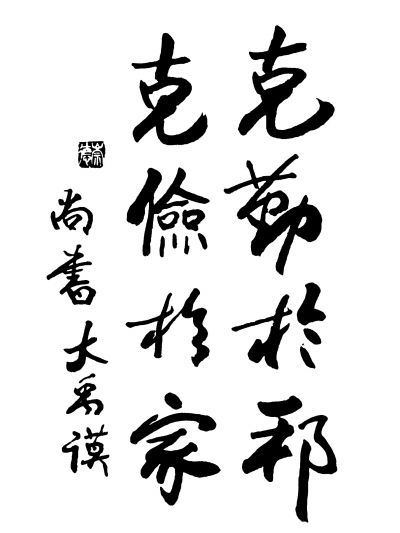 克勤於邦
克儉於家
尚書大禹謨